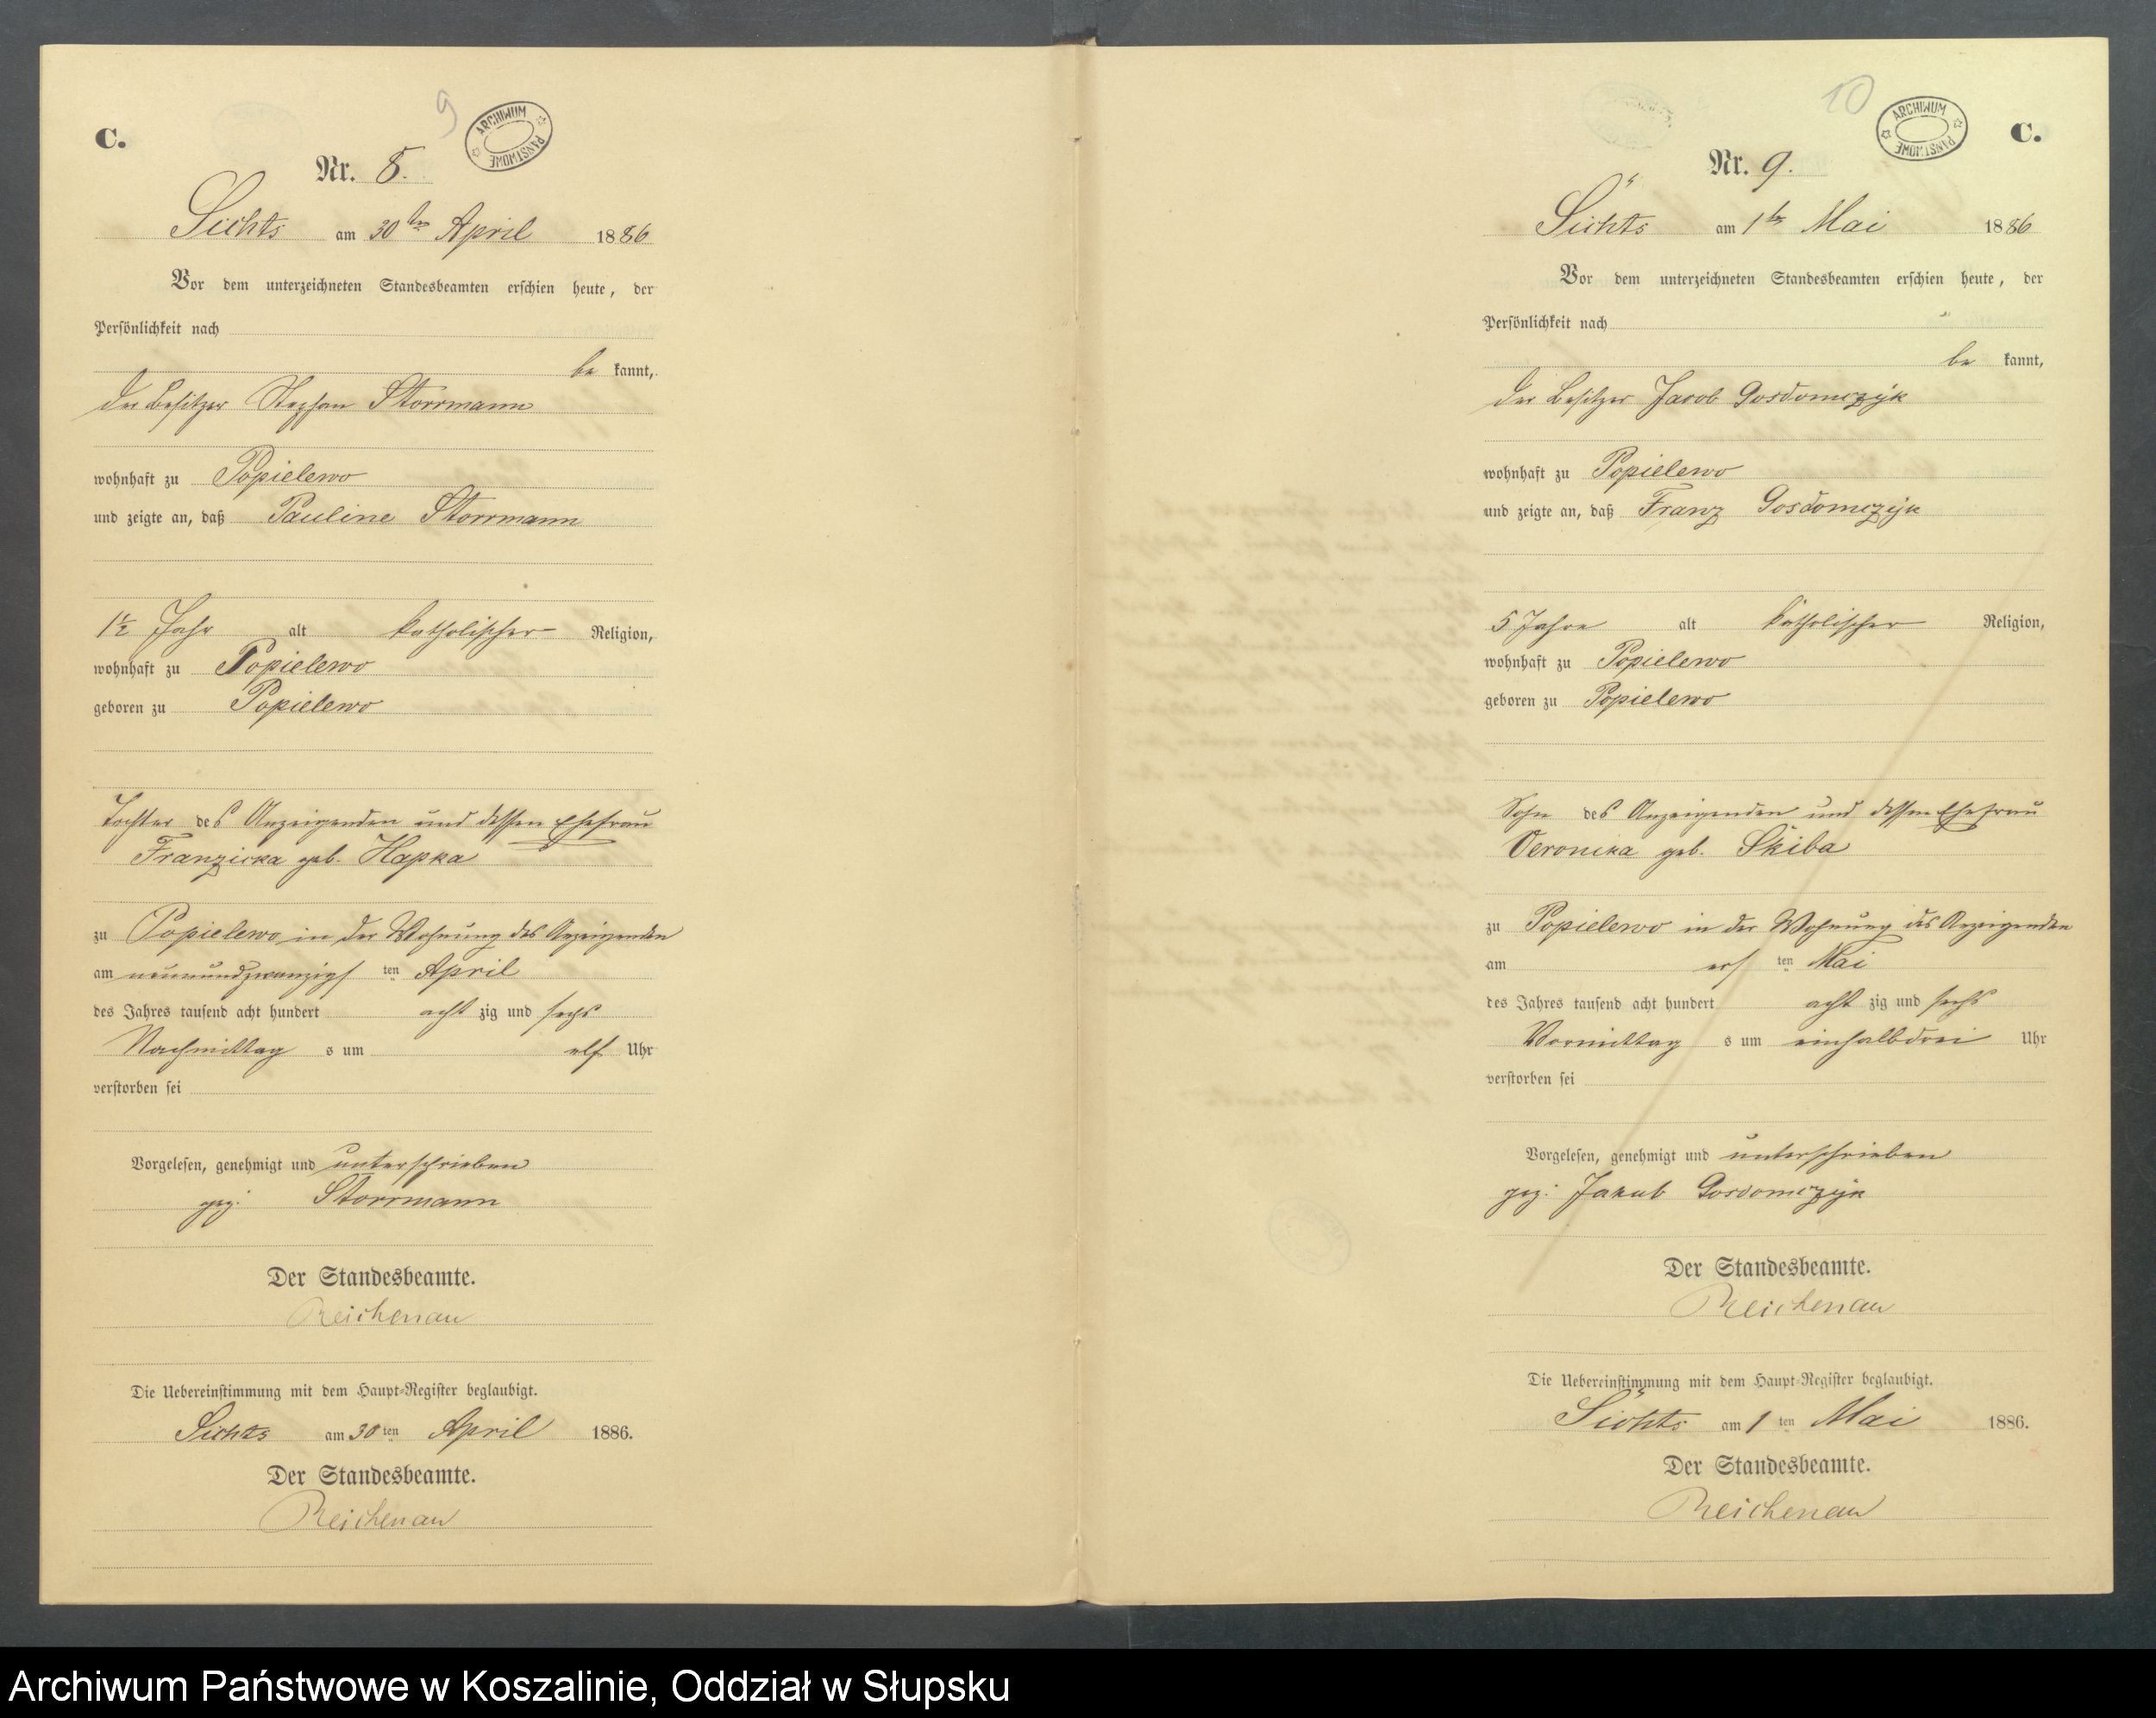 C.
9
ARCHIWUM PAŃSTWOWE
Nr. 8.
Sichts am 30ten April 1886
Vor dem unterzeichneten Standesbeamten erschien heute, der
Persönlichkeit nach
be kannt,
der Besitzer Stephan Storrmann
wohnhaft zu Popielewo
und zeigte an, daß Pauline Storrmann
1½ Jahr alt katholischer Religion,
wohnhaft zu Popielewo
geboren zu Popielewo
Tochter des Anzeigenden und dessen Ehefrau
Franzicka geb. Hapka
zu Popielewo in der Wohnung des Anzeigenden
am neunundzwanzigs ten April
des Jahres tausend acht hundert acht zig und sechs
Nachmittag s um elf Uhr
verstorben sei
Vorgelesen, genehmigt und unterschrieben
gez. Storrmann
Der Standesbeamte.
Reichenau
Die Uebereinstimmung mit dem Haupt-Register beglaubigt.
Sichts am 30 ten April 1886.
Der Standesbeamte.
Reichenau
10
ARCHIWUM PAŃSTWOWE
C.
Nr. 9.
Sichts am 1ten Mai 1886
Vor dem unterzeichneten Standesbeamten erschien heute, der
Persönlichkeit nach
be kannt,
der Besitzer Jacob Gosdomczyk
wohnhaft zu Popielewo
und zeigte an, daß Franz Gosdomczyk
5 Jahre alt katholischer Religion,
wohnhaft zu Popielewo
geboren zu Popielewo
Sohn des Anzeigenden und dessen Ehefrau
Veronika geb. Skiba
zu Popielewo in der Wohnung des Anzeigenden
am ers ten Mai
des Jahres tausend acht hundert acht zig und sechs
Vormittag s um einhalbdrei Uhr
verstorben sei
Vorgelesen, genehmigt und unterschrieben
gez. Jakub Gosdomczyk
Der Standesbeamte.
Reichenau
Die Uebereinstimmung mit dem Haupt-Register beglaubigt.
Sichts am 1 ten Mai 1886.
Der Standesbeamte.
Reichenau
Archiwum Państwowe w Koszalinie, Oddział w Słupsku